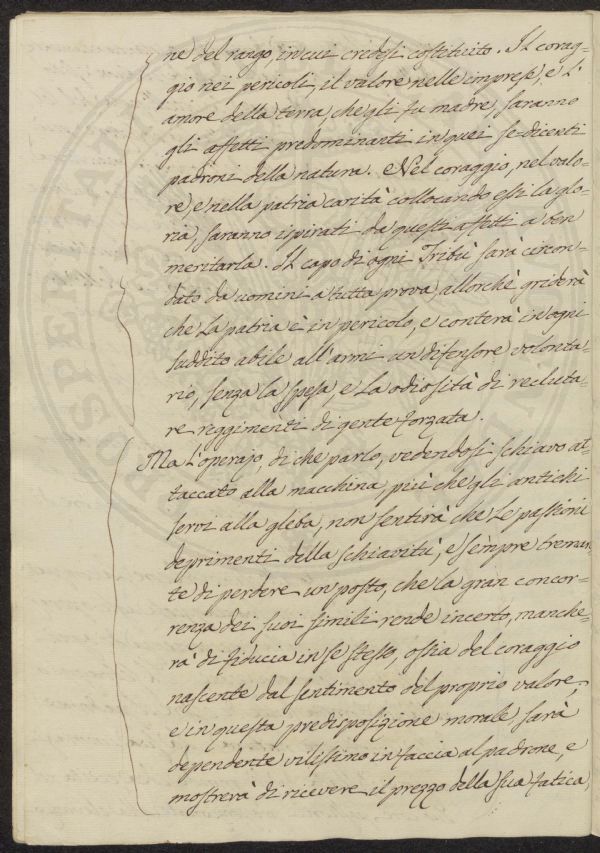 ne del rango, in cui credesi costituito. Il corag-
gio nei pericoli, il valore nelle imprese, e l'
amore della terra, che gli fu madre, saranno
gli affetti predominanti in quei se-dicenti
padroni della natura. Nel coraggio, nel valo-
re, e nella patria carità collocando essi la glo-
ria, saranno ispirati da questi affetti a ben
meritarla. Il capo di ogni Tribù sarà circon-
dato da uomini a tutta prova, allorchè griderà
che la patria è in pericolo, e conterà in ogni
suddito abile all'armi un difensore volonta-
rio, senza la spesa, e la odiosità di recluta-
re reggimenti di gente forzata.
Ma l'operajo, di che parlo, vedendosi schiavo at-
taccato alla macchina più che gli antichi
servi alla gleba, non sentirà che le passioni
deprimenti della schiavitù, e sempre treman-
te di perdere un posto, che la gran concor-
renza dei suoi simili rende incerto, manche-
rà di fiducia in se stesso, ossia del coraggio
nascente dal sentimento del proprio valore,
e in questa predisposizione morale, sarà
dependente vilissimo in faccia al padrone, e
mostrerà di ricevere il prezzo della sua fatica,
PROSPERITATI